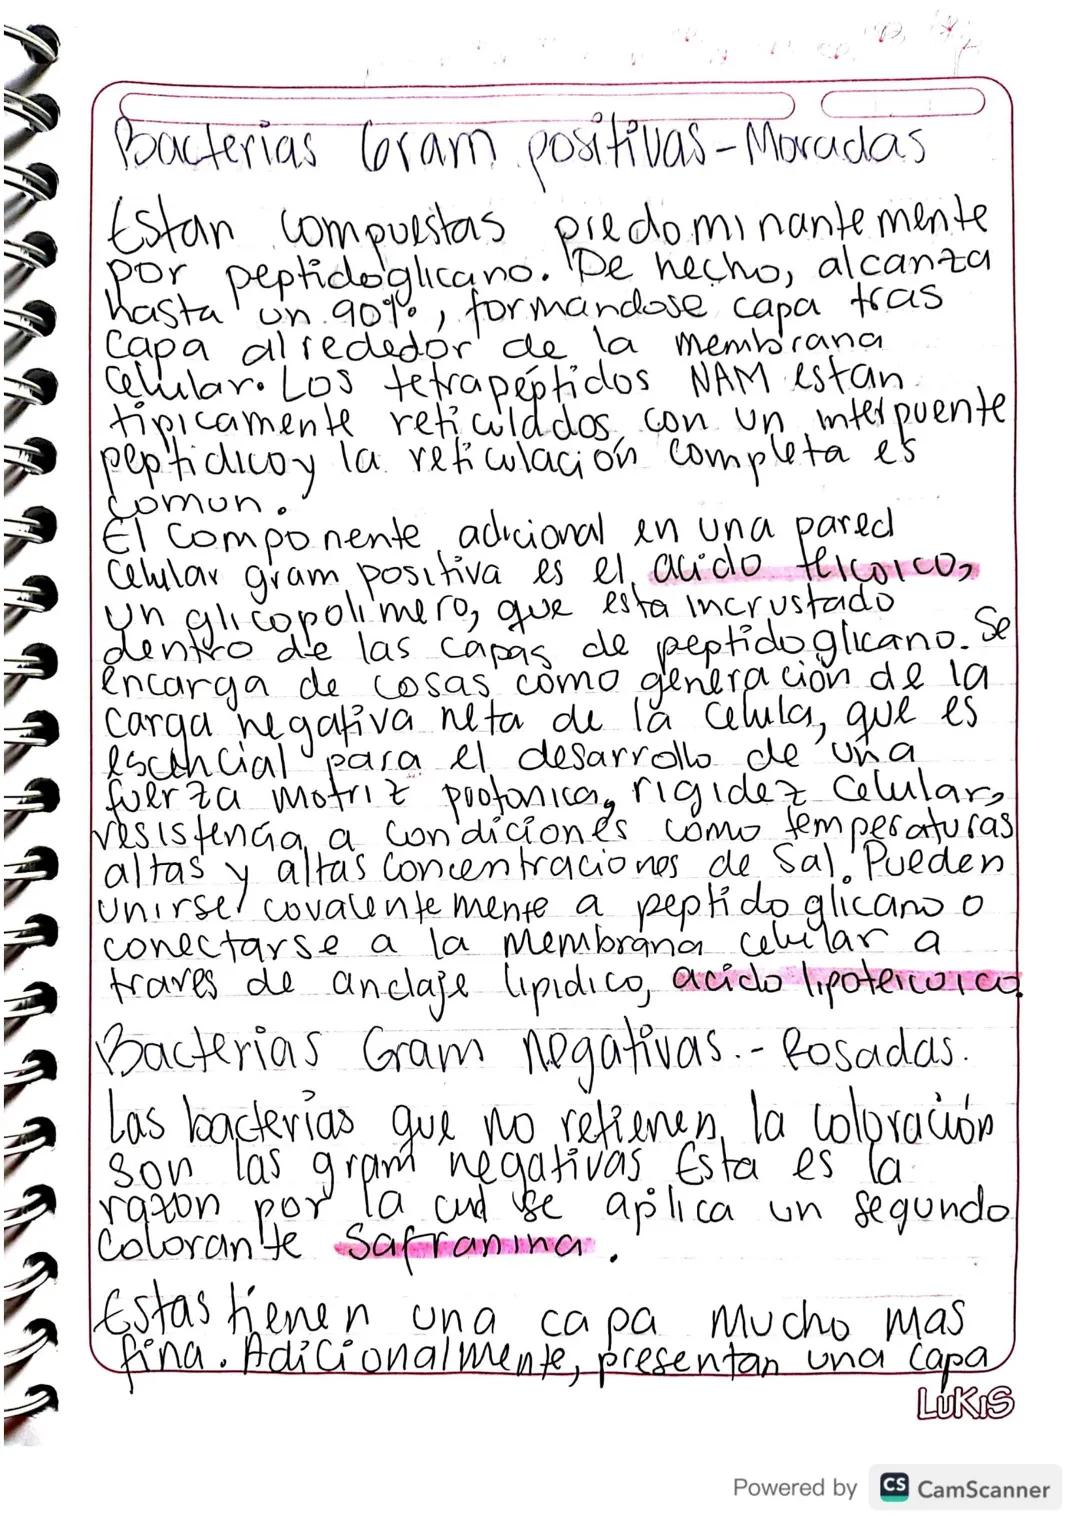 Bacterias Gram positivas - Moradas
Estan compuestas predominantemente
por peptidoglicano. De hecho, alcanza
hasta un 90%, formandose capa tras
capa alrededor de la membrana
celular. Los tetrapéptidos NAM estan
tipicamente reticulados, con un interpuente
peptidico y la reticulación completa es
comun.
El componente adicional en una pared
celular gram positiva es el acido teicoico,
un glicopolimero, que esta incrustado
dentro de las capas de peptidoglicano. Se
encarga de cosas como generación de la
carga negativa neta de la celula, que es
escencial para el desarrollo de una
fuerza motriz protonica, rigidez celular,
resistencia a condiciones como temperaturas
altas y altas concentraciones de sal. Pueden
unirse covalentemente a peptidoglicano o
conectarse a la membrana celular a
traves de anclaje lipidico, acido lipoteicoico
Bacterias Gram negativas.- Rosadas.
Las bacterias que no retienen la coloración
son las gram negativas Esta es la
razon por la cual se aplica un segundo
colorante Safranina.
Estas tienen una capa mucho mas
fina. Adicionalmente, presentan una capa
LUKIS
Powered by CS CamScanner